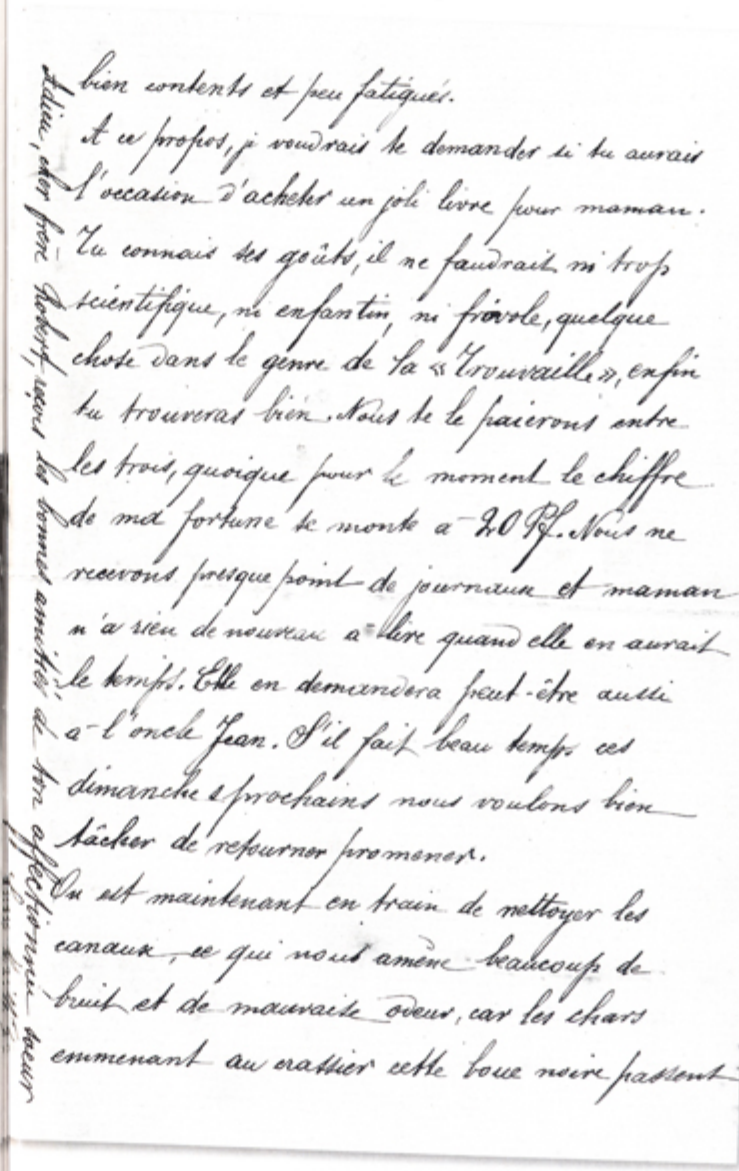 bien contents et peu fatigués.
A ce propos, je voudrais te demander si tu aurais
l'occasion d'acheter un joli livre pour maman.
Tu connais ses goûts, il ne faudrait ni trop
scientifique, ni enfantin, ni frivole, quelque
chose dans le genre de la « Trouvaille », enfin
tu trouveras bien. Nous te le paierons entre
les trois, quoique pour le moment le chiffre
de ma fortune se monte à 20 Pf. Nous ne
recevons presque point de journaux et maman
n'a rien de nouveau à lire quand elle en aurait
le temps. Elle en demandera peut-être aussi
à l'oncle Jean. S'il fait beau temps ces
dimanches prochains nous voulons bien
tâcher de retourner promener.
On est maintenant en train de nettoyer les
canaux, ce qui nous amène beaucoup de
bruit et de mauvaise odeur, car les chars
emmenant au crassier cette boue noire passent
Adieu, cher frère Robert, reçois les bonnes amitiés de ton affectionnée soeur